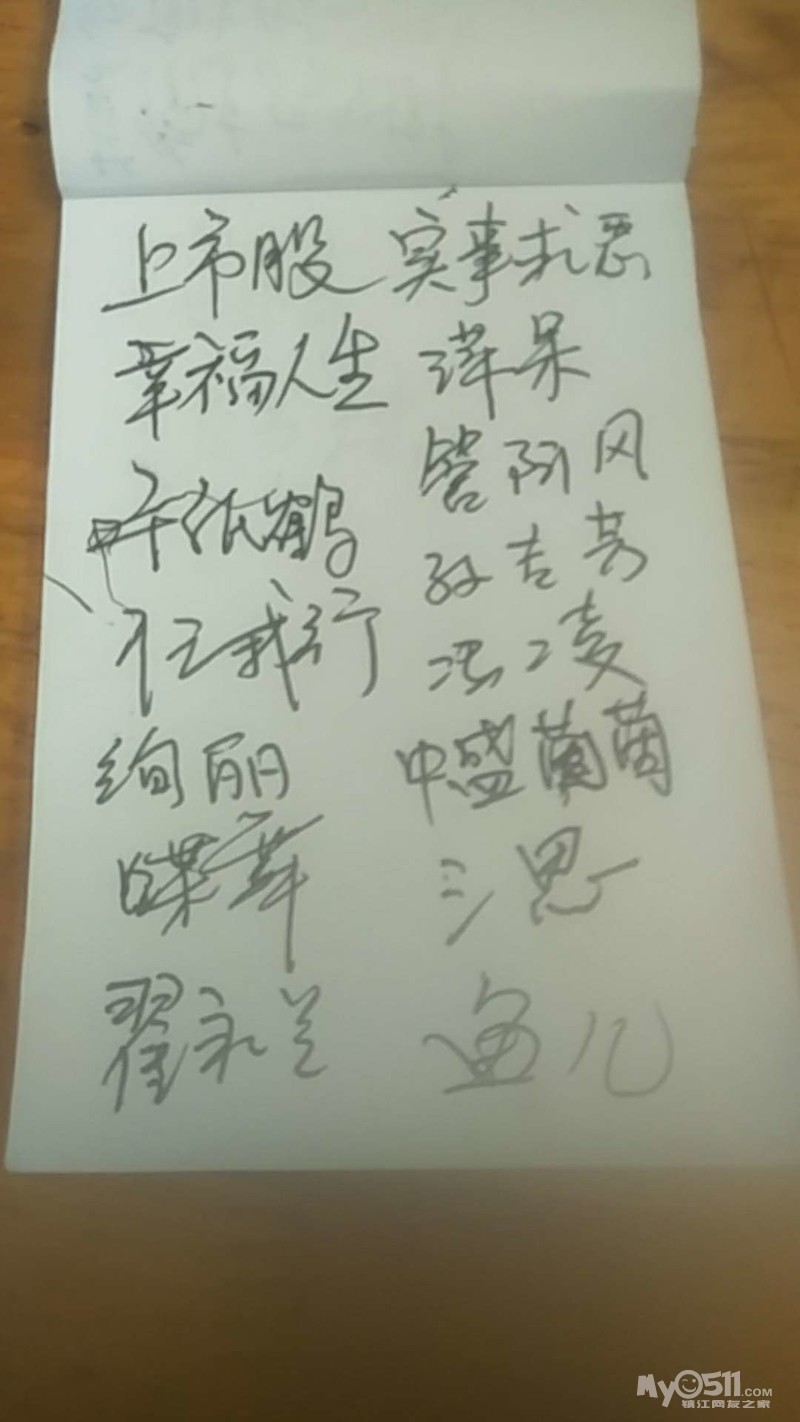 上市股 实事求恶
幸福人生 洋呆
千纸鹤 管阿风
任我行 孙吉芳
绚丽 冰凌
蝶舞 中盛葡萄
翟永兰 三思
鱼儿
MY0511.COM
镇江网友之家